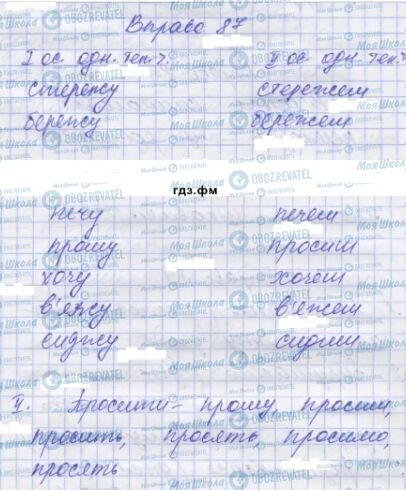 Вправа 87
I ос. одн. теп. ч. II ос. одн. теп. ч.
стережу стережеш
бережу бережеш
гдз.фм
печу печеш
прошу просиш
хочу хочеш
в'яжу в'яжеш
сиджу сидиш
II. Просити - прошу, просиш,
просить, просять, просимо,
просять